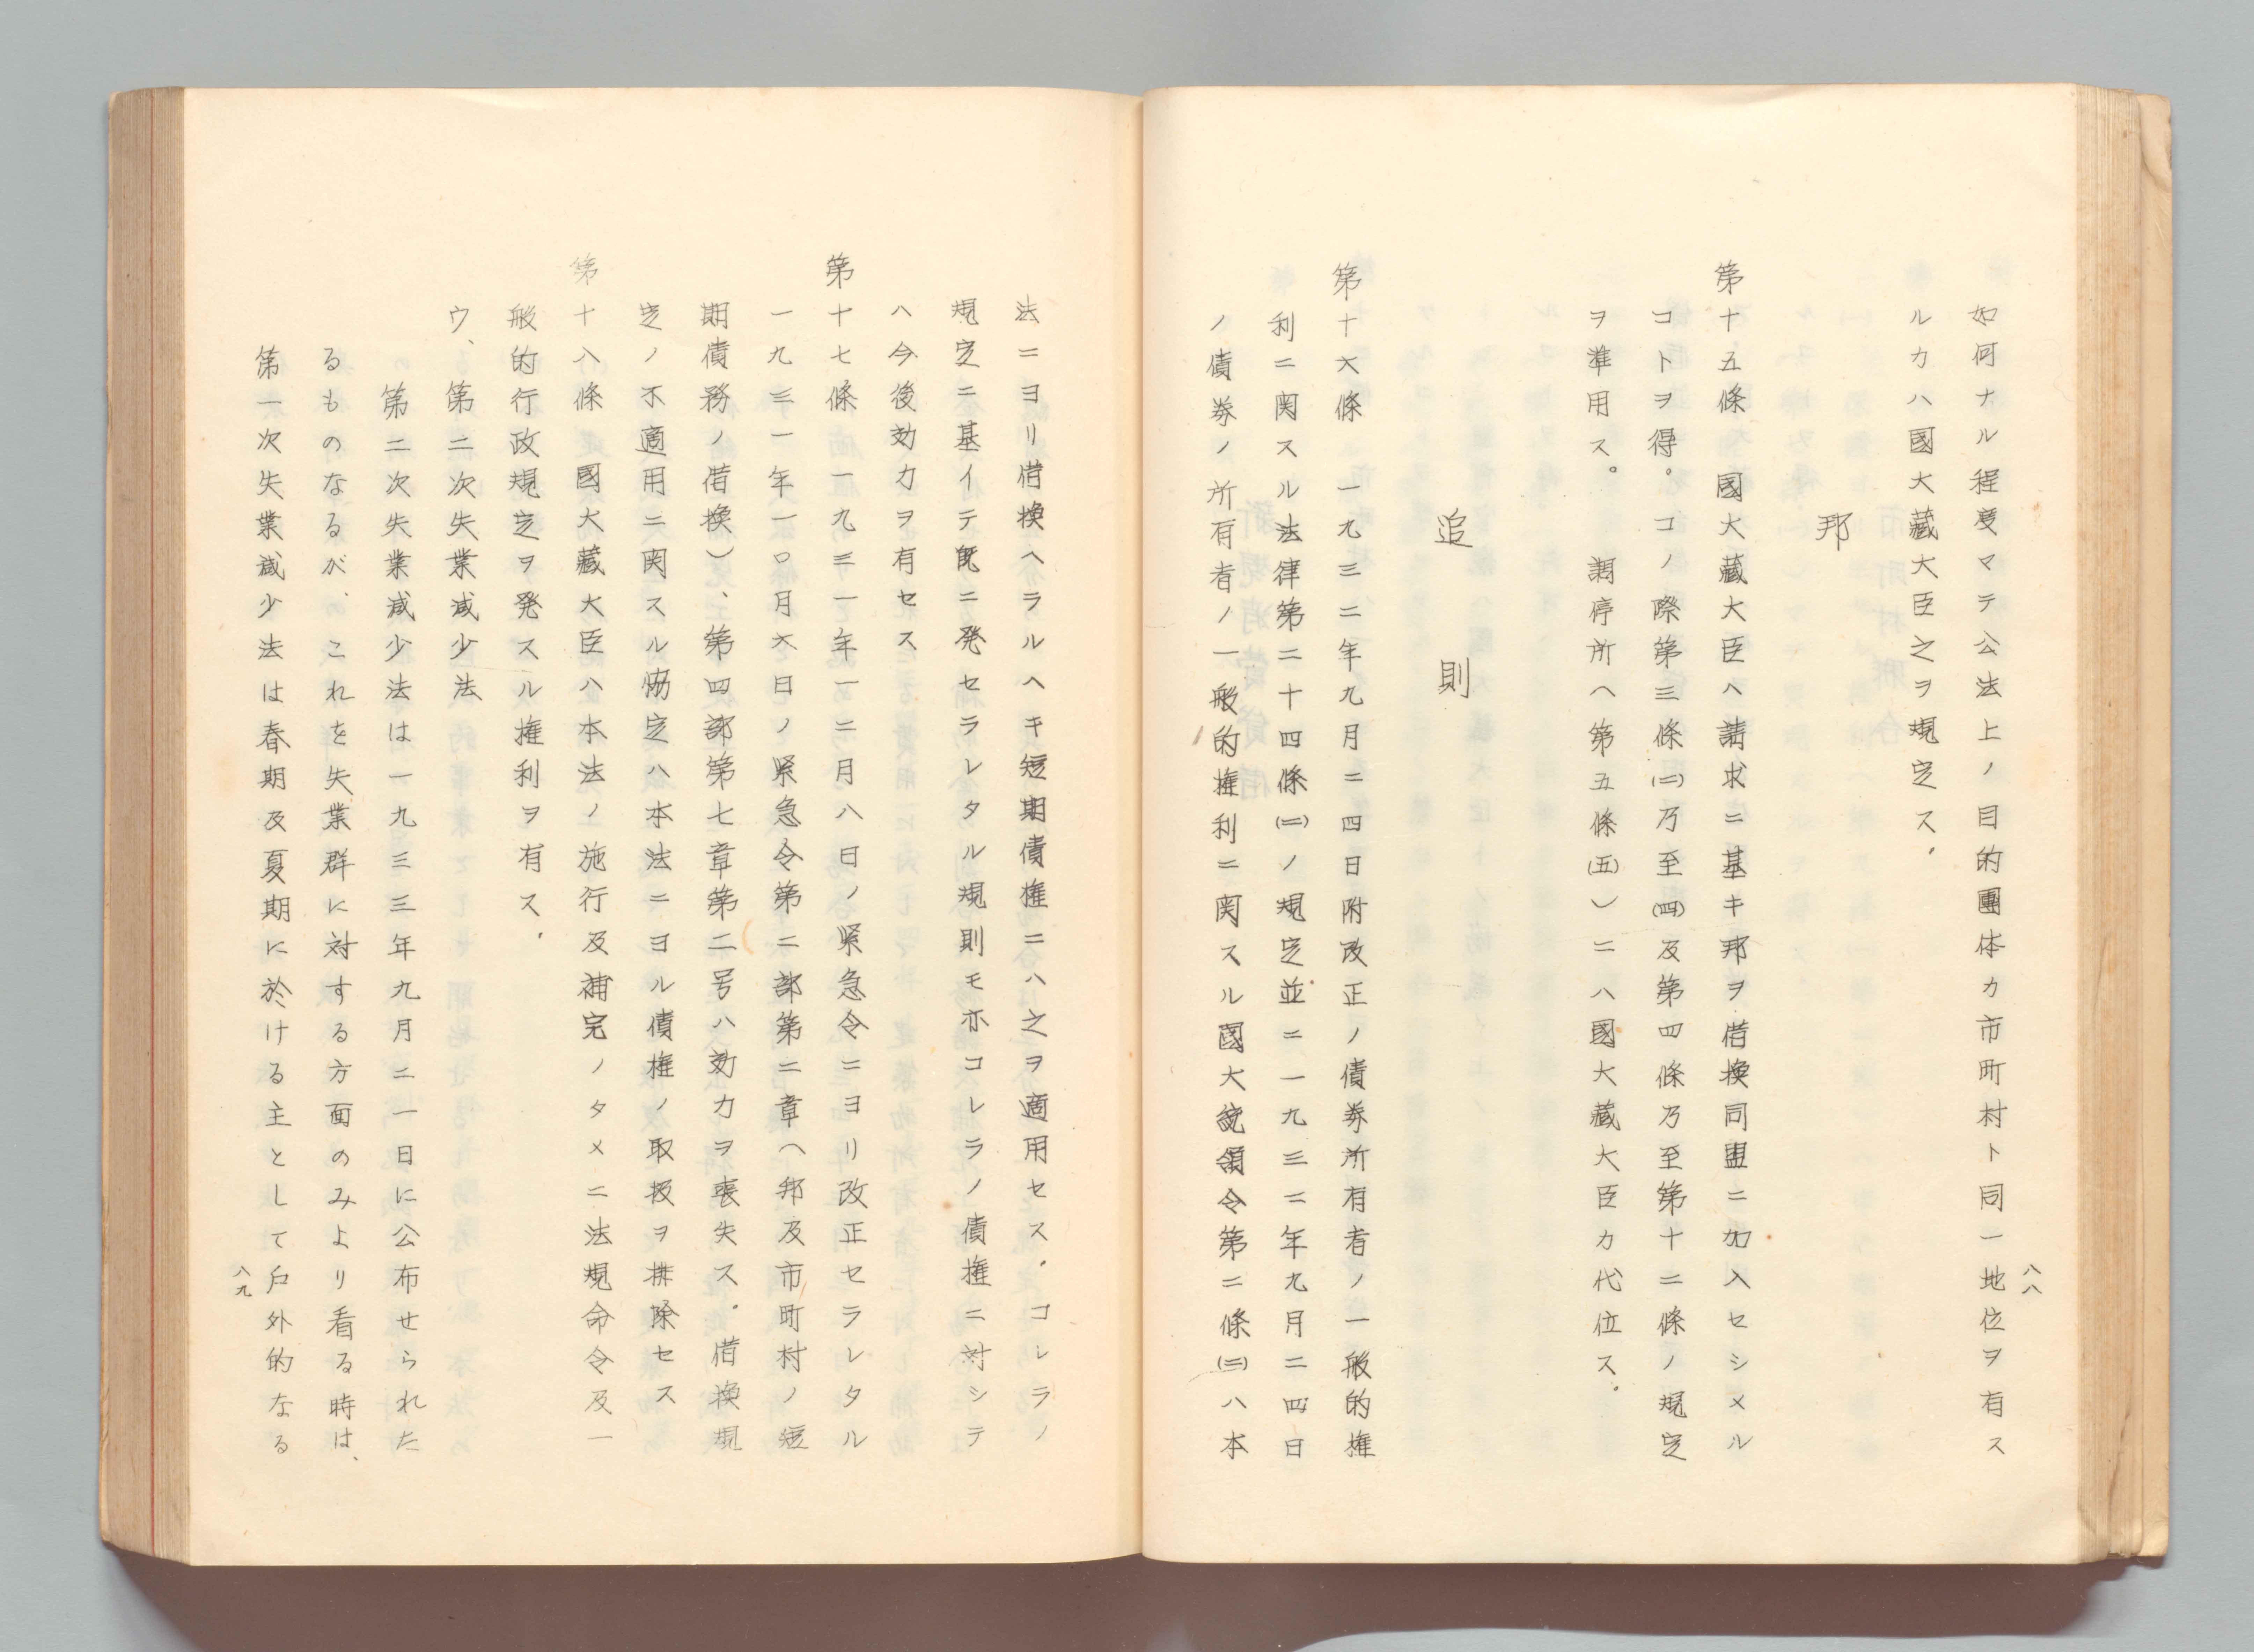 如何ナル程度マテ公法上ノ目的團体カ市町村ト同一地位ヲ有ス
ルカハ國大藏大臣之ヲ規定ス、
邦
第十五條　國大藏大臣ハ請求ニ基キ邦ヲ借換同盟ニ加入セシメル
コトヲ得。コノ際第三條(二)乃至(四)及第四條乃至第十二條ノ規定
ヲ準用ス。　調停所ヘ第五條(五)）ニハ國大藏大臣カ代位ス、
追則
第十六條　一九三二年九月二四日附改正ノ債券所有者ノ一般的権
利ニ関スル法律第二十四條(二)ノ規定並ニ一九三二年九月二四日
ノ債券ノ所有者ノ一般的権利ニ関スル國大統領令第二條(三)ハ本
八八
法ニヨリ借換ヘラルヘキ短期債権ニハ之ヲ適用セス、コレラノ
規定ニ基イテ既ニ発セラレタル規則モ亦コレラノ債権ニ対シテ
ハ今後効力ヲ有セス
第十七條　一九三一年一二月八日ノ緊急令ニヨリ改正セラレタル
一九三一年一〇月六日ノ緊急令第二部第二章ヘ邦及市町村ノ短
期債務ノ借換）、第四部第七章第二号ハ効力ヲ喪失ス。借換規
定ノ不適用ニ関スル協定ハ本法ニヨル債権ノ取扱ヲ排除セス
第十八條　國大藏大臣ハ本法ノ施行及補完ノタメニ法規命令及一
般的行政規定ヲ発スル権利ヲ有ス、
ウ、第二次失業減少法
第二次失業減少法は一九三三年九月二一日に公布せられた
るものなるが、これを失業群に対する方面のみより看る時は、
第一次失業減少法は春期及夏期に於ける主として戸外的なる
八九